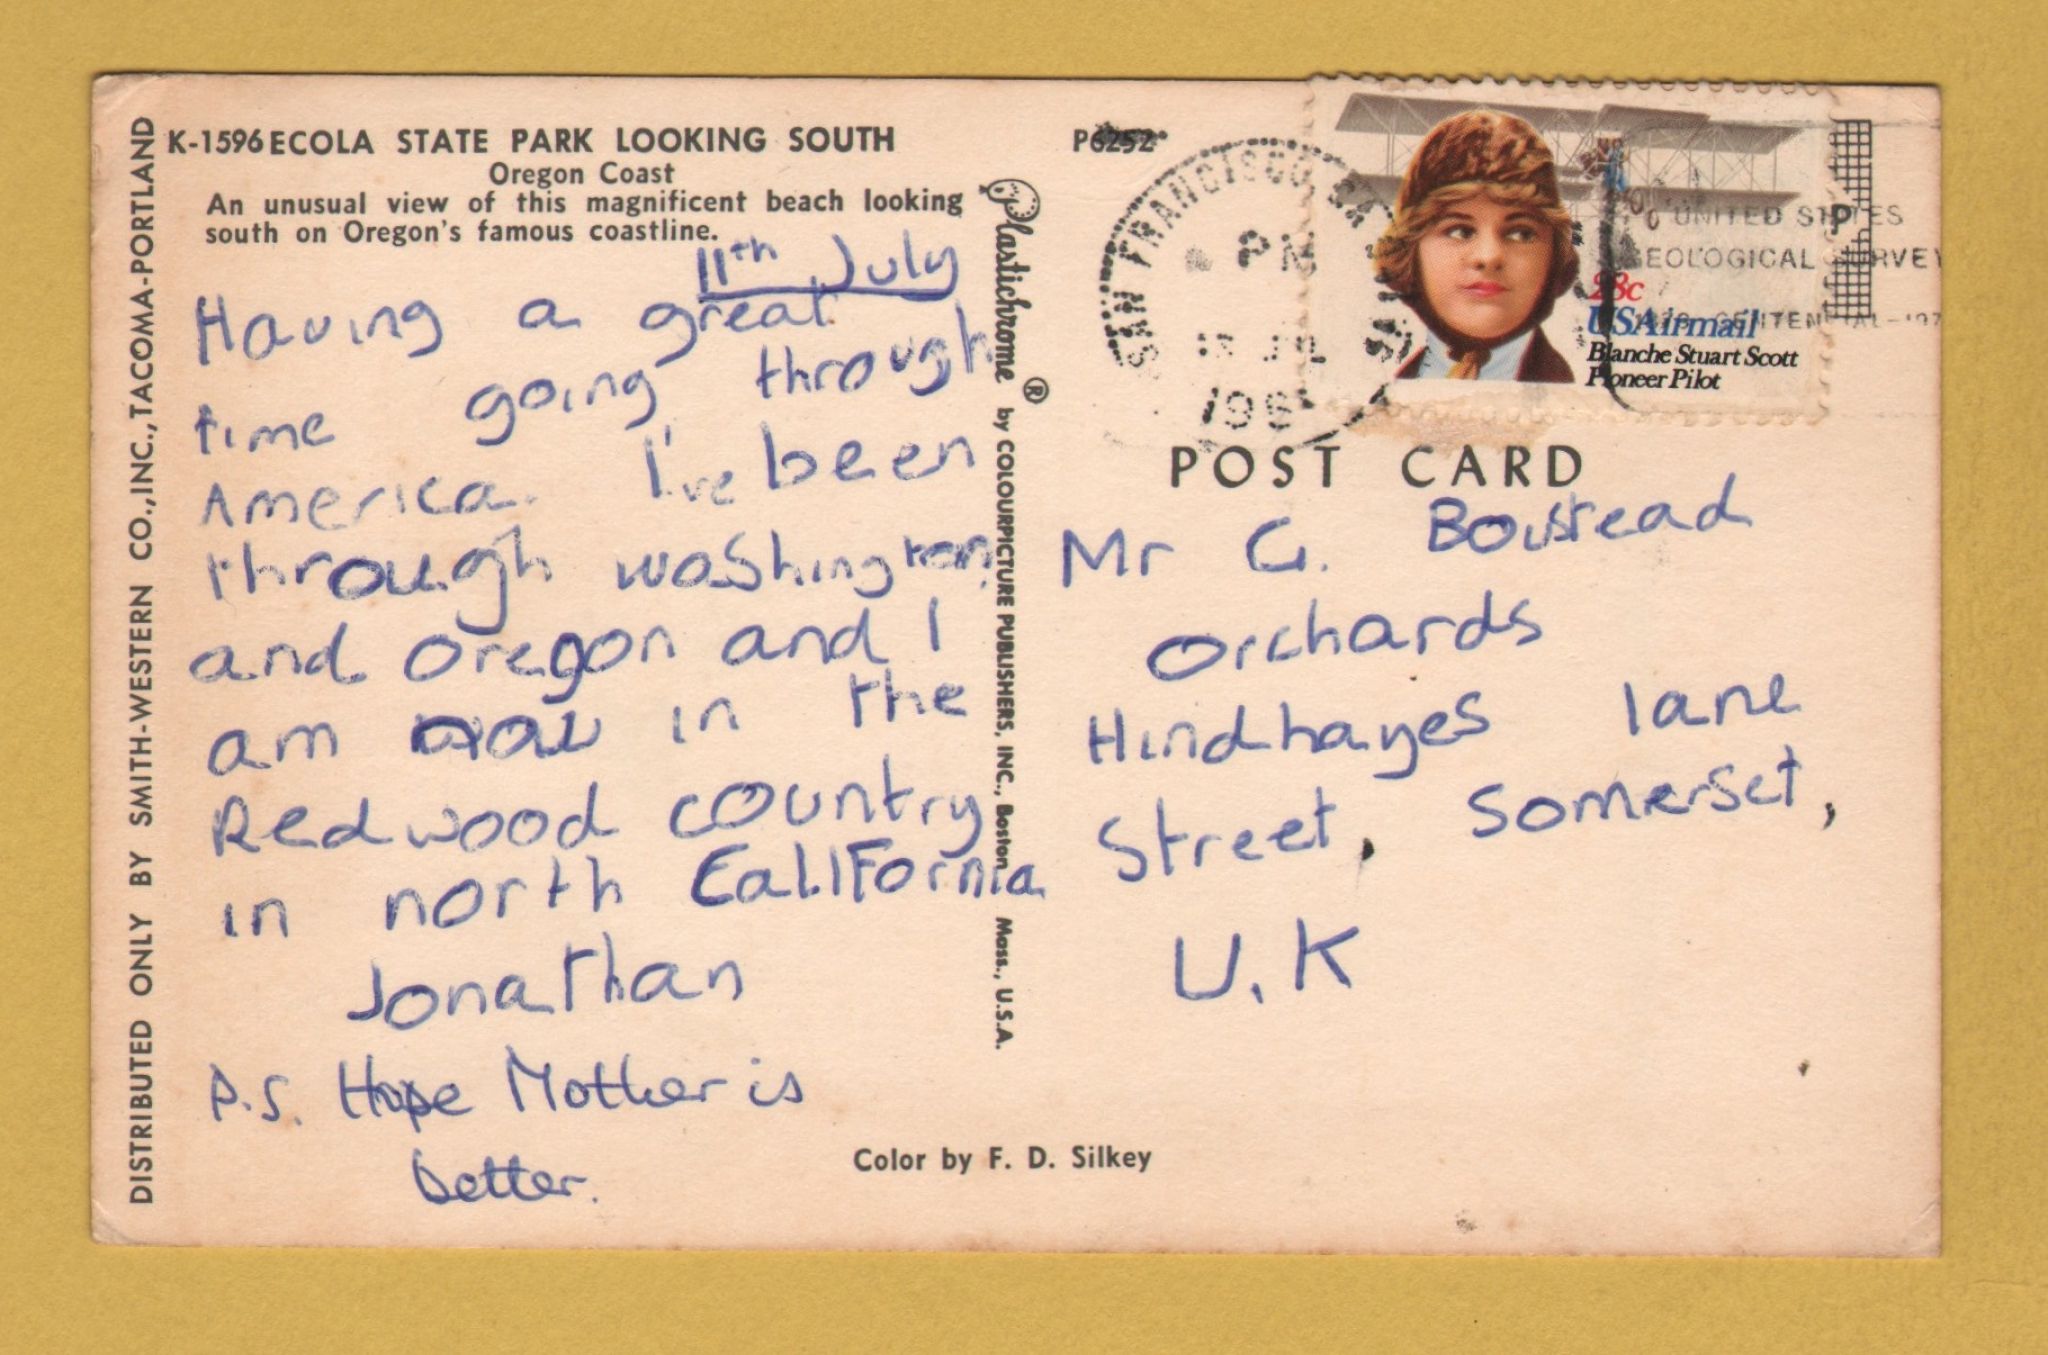 DISTRIBUTED ONLY BY SMITH-WESTERN CO., INC., TACOMA-PORTLAND
K-1596 ECOLA STATE PARK LOOKING SOUTH
Oregon Coast
An unusual view of this magnificent beach looking
south on Oregon's famous coastline.
11th July
Having a great
time going through
America. I've been
through washington
and oregon and I
am now in the
Redwood country
in north California
Jonathan
P.S. Hope Mother is
better.
Plastichrome ® by COLOURPICTURE PUBLISHERS, INC., Boston, Mass., U.S.A.
Color by F. D. Silkey
P6252
SAN FRANCISCO, CA
PM
JUL
198
UNITED STATES
GEOLOGICAL SURVEY
CENTENNIAL
28c
USAirmail
Blanche Stuart Scott
Pioneer Pilot
POST CARD
Mr G. Boustead
Orchards
Hindhayes lane
Street, Somerset,
U.K